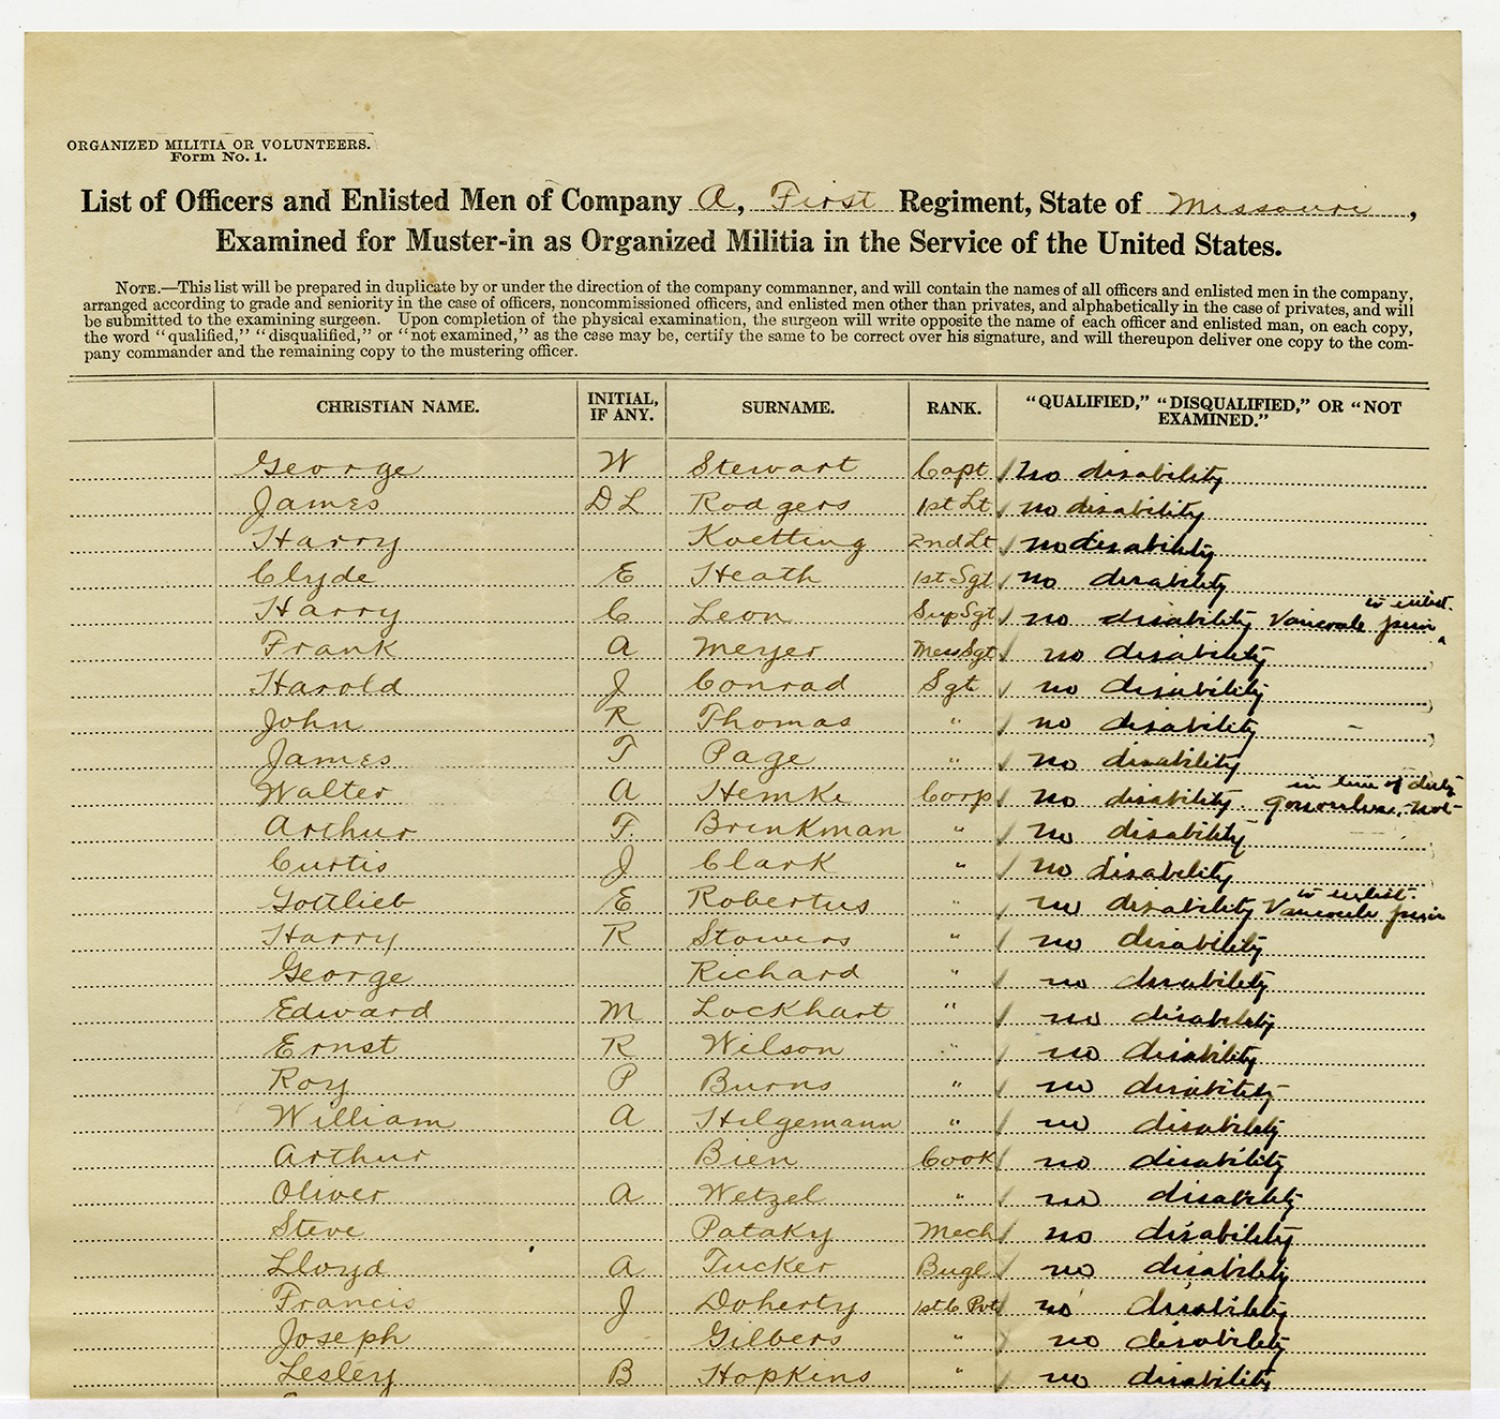 ORGANIZED MILITIA OR VOLUNTEERS.
Form No. 1.
List of Officers and Enlisted Men of Company A, First Regiment, State of Missouri,
Examined for Muster-in as Organized Militia in the Service of the United States.
NOTE.—This list will be prepared in duplicate by or under the direction of the company commanner, and will contain the names of all officers and enlisted men in the company,
arranged according to grade and seniority in the case of officers, noncommissioned officers, and enlisted men other than privates, and alphabetically in the case of privates, and will
be submitted to the examining surgeon. Upon completion of the physical examination, the surgeon will write opposite the name of each officer and enlisted man, on each copy,
the word "qualified," "disqualified," or "not examined," as the case may be, certify the same to be correct over his signature, and will thereupon deliver one copy to the com-
pany commander and the remaining copy to the mustering officer.
CHRISTIAN NAME. INITIAL, IF ANY. SURNAME. RANK. "QUALIFIED," "DISQUALIFIED," OR "NOT EXAMINED."
George W Stewart Capt no disability
James D L Rodgers 1st Lt no disability
Harry Koetting 2nd Lt no disability
Clyde E Heath 1st Sgt no disability
Harry C Leon Sup Sgt no disability to enlist.
Frank A Meyer Mess Sgt no disability
Harold J Conrad Sgt no disability
John R Thomas " no disability
James T Page " no disability
Walter A Hemke Corp no disability. in line of duty not
Arthur F. Brinkman " no disability
Curtis J Clark " no disability
Gottlieb E Robertus " no disability to enlist.
Harry R Stowers " no disability
George Richard " no disability
Edward M Lockhart " no disability
Ernst R Wilson " no disability
Roy P Burns " no disability
William A Hilgemann " no disability
Arthur Bien Cook no disability
Oliver A Wetzel " no disability
Steve Pataky Mech no disability
Lloyd A Tucker Bugl no disability
Francis J Doherty 1st C Pvt no disability
Joseph Gilbers " no disability
Lesley B Hopkins " no disability